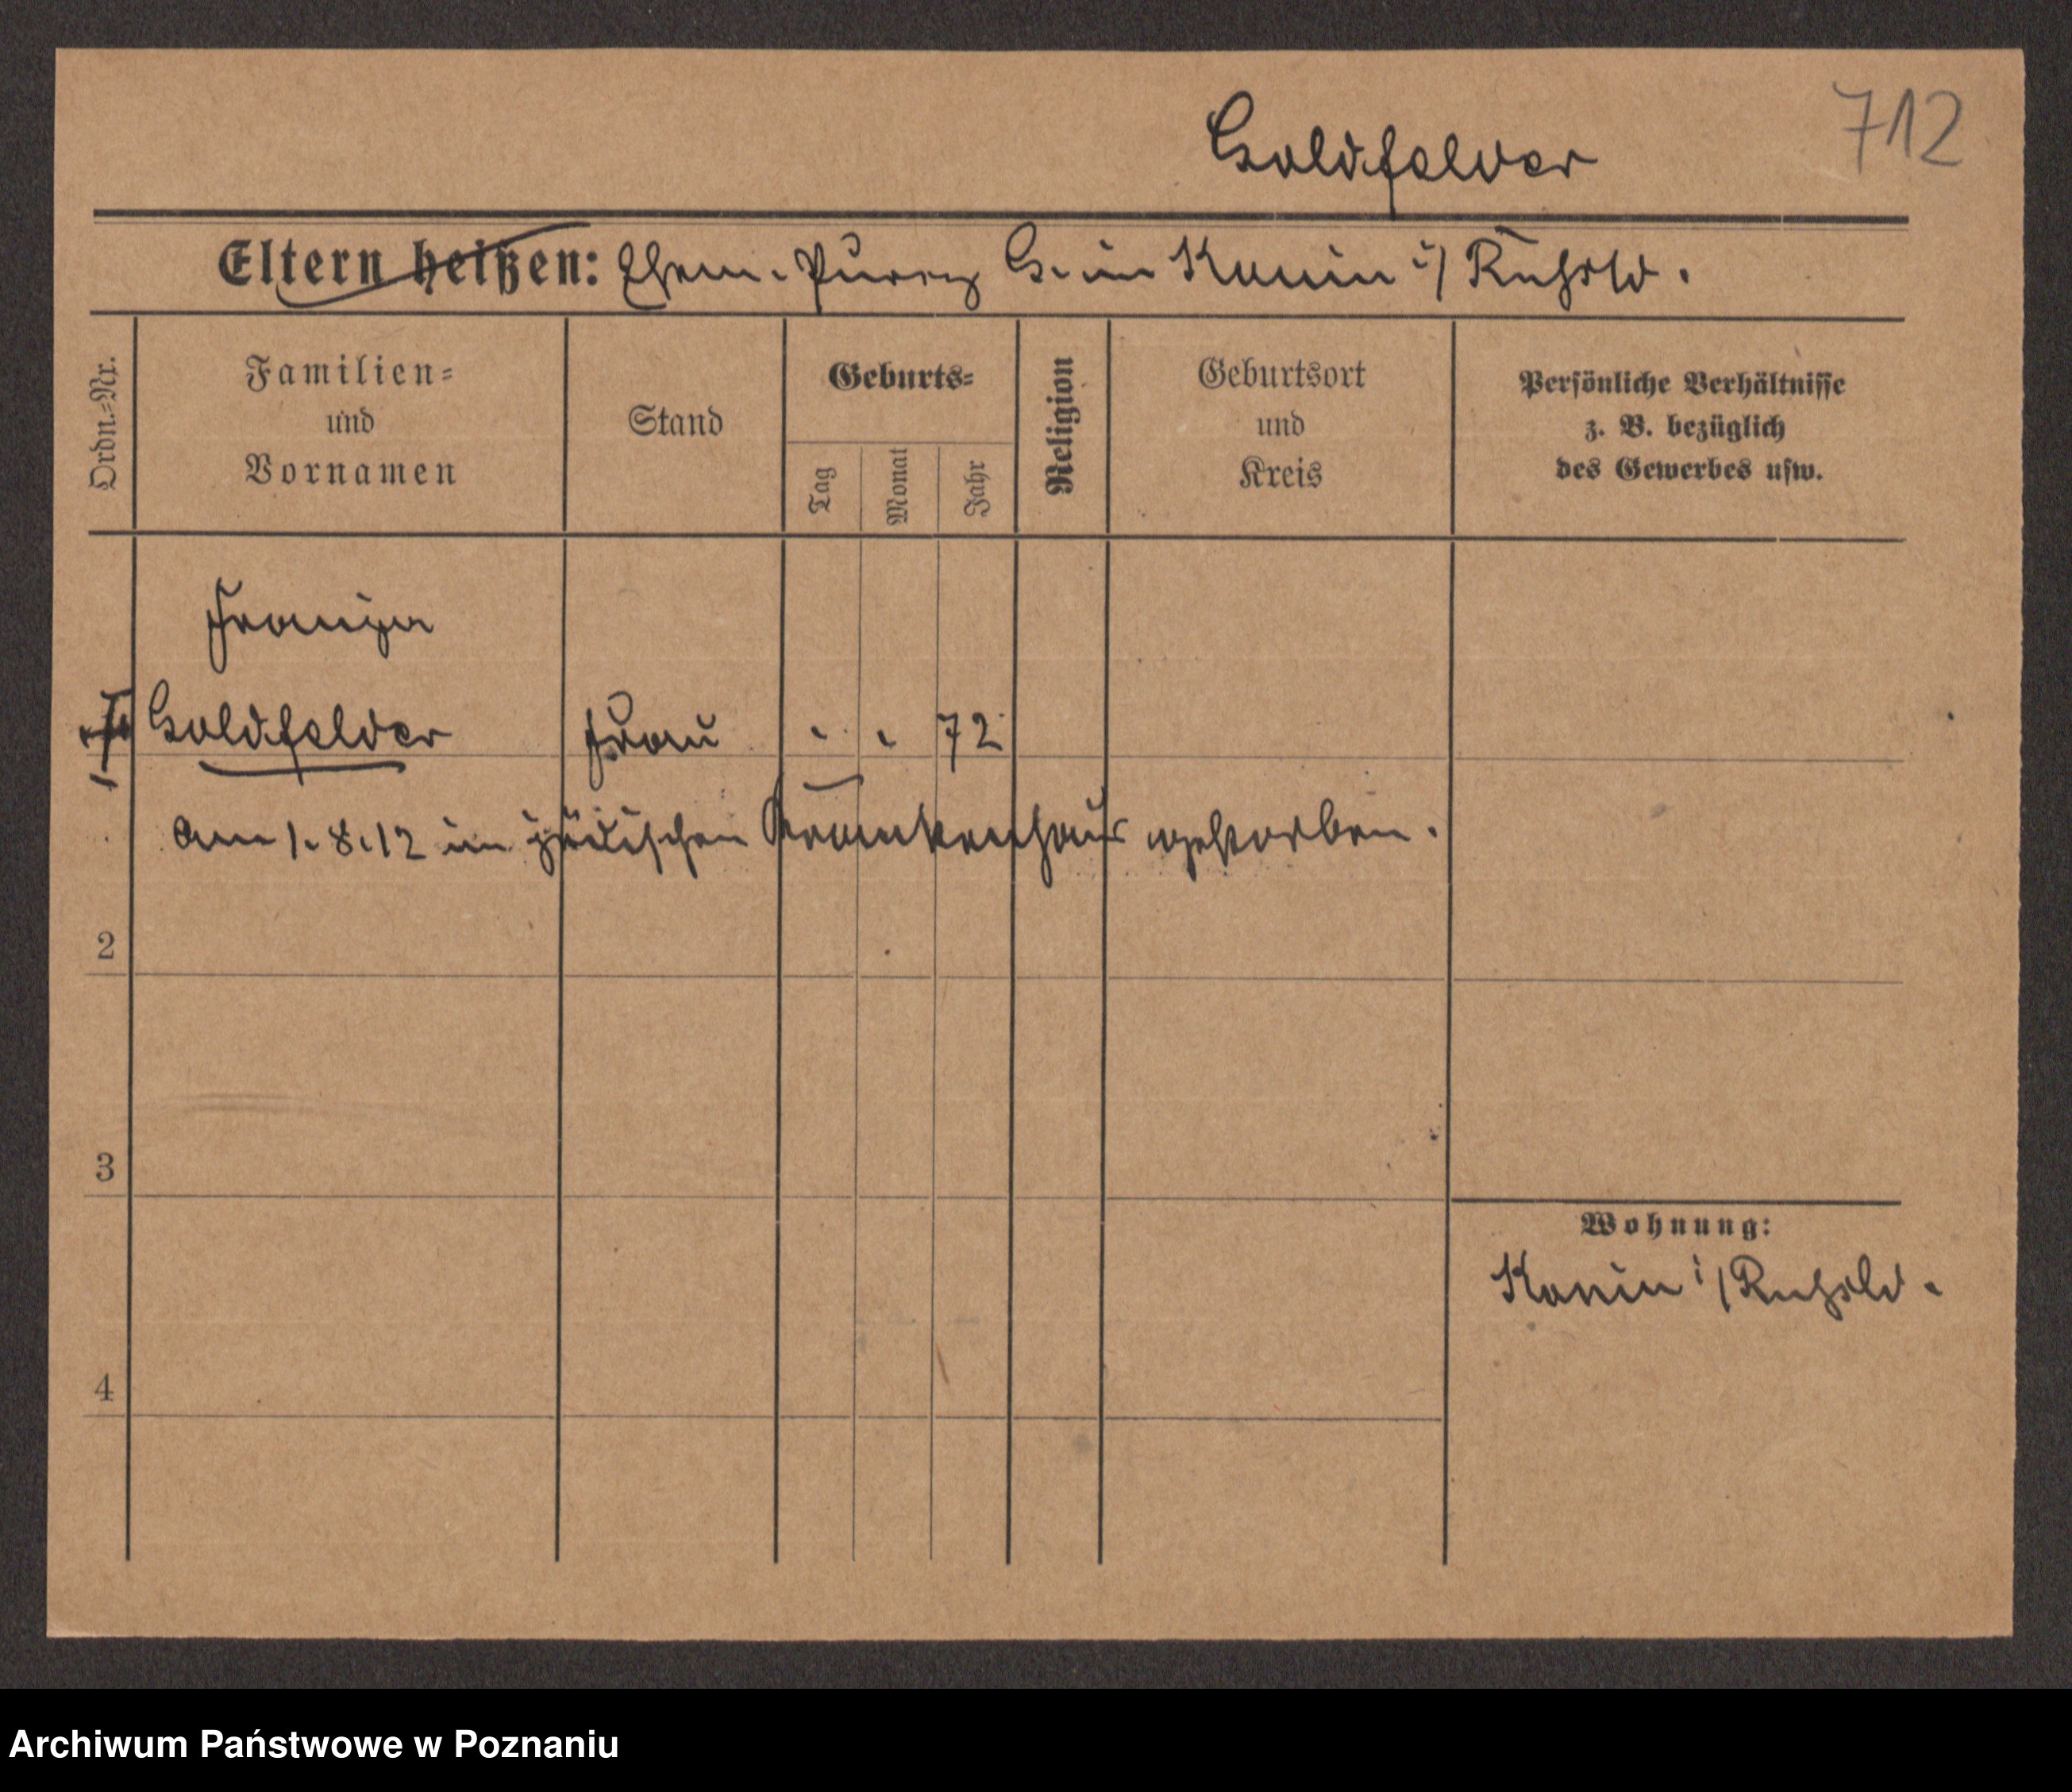 712
Goldfelder
Eltern heißen: Ehem. G. in Konin i/ Rußld.
Ordn.=Nr.
Familien=
und
Vornamen
Stand
Geburts=
Tag
Monat
Jahr
Religion
Geburtsort
und
Kreis
Persönliche Verhältnisse
z. B. bezüglich
des Gewerbes usw.
Goldfelder Frau 72
am 1.8.12 im jüdischen Krankenhaus gestorben.
2
3
Wohnung:
Konin i/Rußld.
4
Archiwum Państwowe w Poznaniu